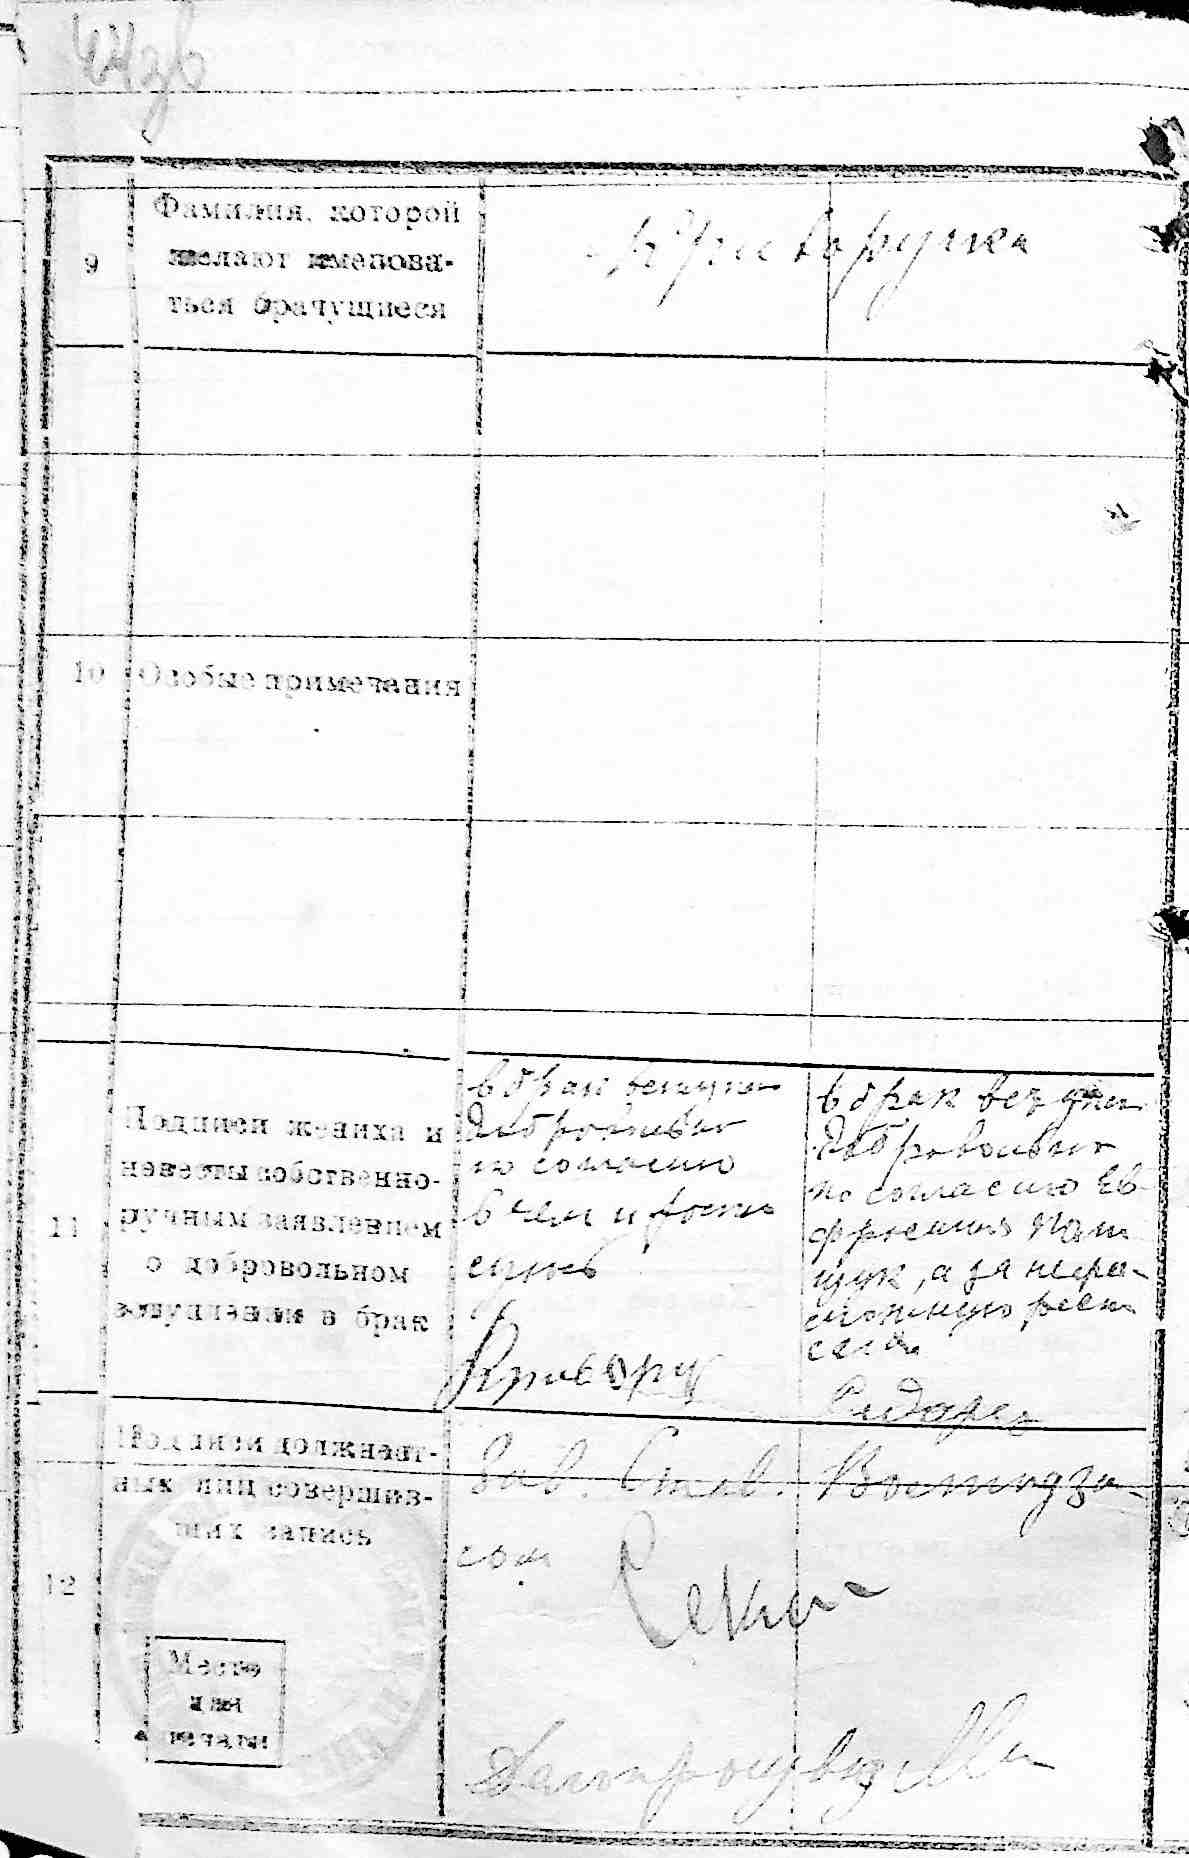 9
Фамилия, которой
желают именова-
ться брачущиеся
Криворучка
10
Особые примечания
11
Подписи жениха и
невесты собственно-
ручным заявлением
о добровольном
вступлении в брак
в брак вступаю
добровольно
по согласию
в чем и распи
суюсь
Кривору
в брак вступаю
добровольно
по согласию Ев-
фросиния
а за негра-
мотную распи
сался
12
Подписи должност-
ных лиц совершив-
ших запись
Зав. Стол.
сом
Делопроизвод
Место
для
печати